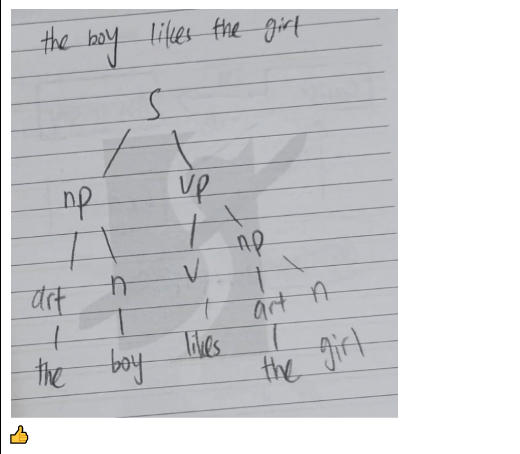 the boy likes the girl
S
np vp
art n v np
art n
the boy likes the girl